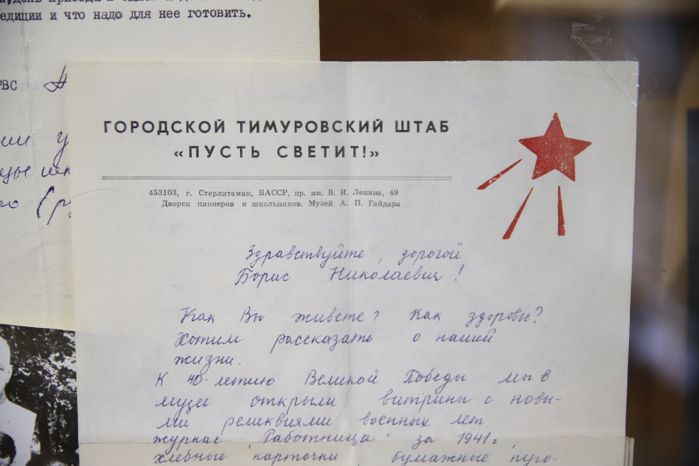 едиции и что надо для нее готовить.
РВС
ГОРОДСКОЙ ТИМУРОВСКИЙ ШТАБ
«ПУСТЬ СВЕТИТ!»
453103, г. Стерлитамак, БАССР, пр. им. В. И. Ленина, 49
Дворец пионеров и школьников. Музей А. П. Гайдара
Здравствуйте, дорогой
Борис Николаевич!
Как Вы живете? Как здоровье?
Хотим рассказать о нашей
жизни.
К 40-летию Великой Победы мы в
музее открыли витрины с новы-
ми реликвиями военных лет
журнал "Работница" за 1941г.
хлебные карточки бумажные пуго-